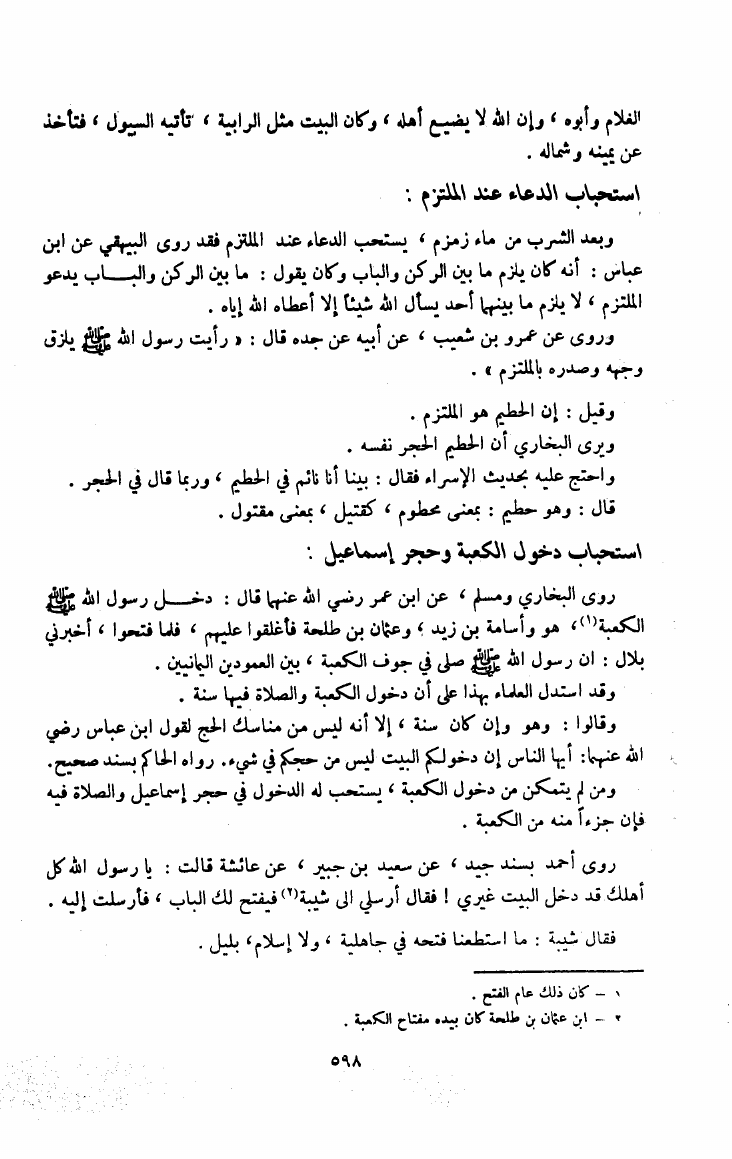 الغلام وأبوه ، وإن الله لا يضيع أهله ، وكان البيت مثل الرابية ، تأتيه السيول ، فتأخذ
عن يمينه وشماله .
استحباب الدعاء عند الملتزم :
وبعد الشرب من ماء زمزم ، يستحب الدعاء عند الملتزم فقد روى البيهقي عن ابن
عباس : أنه كان يلزم ما بين الركن والباب وكان يقول : ما بين الركن والبـــاب يدعو
الملتزم ، لا يلزم ما بينهما أحد يسأل الله شيئاً إلا أعطاه الله إياه .
وروى عن عمرو بن شعيب ، عن أبيه عن جده قال : « رأيت رسول الله ﷺ يلزق
وجهه وصدره بالملتزم » .
وقيل : إن الحطيم هو الملتزم .
ويرى البخاري أن الحطيم الحجر نفسه .
واحتج عليه بحديث الإسراء فقال : بينا أنا نائم في الحطيم ، وربما قال في الحجر .
قال : وهو حطيم : بمعنى محطوم ، كقتيل ، بمعنى مقتول .
استحباب دخول الكعبة وحجر إسماعيل :
روى البخاري ومسلم ، عن ابن عمر رضي الله عنهما قال : دخـــل رسول الله ﷺ
الكعبة(١)، هو وأسامة بن زيد ، وعثمان بن طلحة فأغلقوا عليهم ، فلما فتحوا ، أخبرني
بلال : ان رسول الله ﷺ صلى في جوف الكعبة ، بين العمودين اليمانيين .
وقد استدل العلماء بهذا على أن دخول الكعبة والصلاة فيها سنة .
وقالوا : وهو وإن كان سنة ، إلا أنه ليس من مناسك الحج لقول ابن عباس رضي
الله عنهما: أيها الناس إن دخولكم البيت ليس من حجكم في شيء. رواه الحاكم بسند صحيح.
ومن لم يتمكن من دخول الكعبة ، يستحب له الدخول في حجر إسماعيل والصلاة فيه
فإن جزءاً منه من الكعبة .
روى أحمد بسند جيد ، عن سعيد بن جبير ، عن عائشة قالت : يا رسول الله كل
أهلك قد دخل البيت غيري ! فقال أرسلي الى شيبة(٢) فيفتح لك الباب ، فأرسلت إليه .
فقال شيبة : ما استطعنا فتحه في جاهلية ، ولا إسلام، بليل .
١ – كان ذلك عام الفتح .
٢ – ابن عثمان بن طلحة كان بيده مفتاح الكعبة .
٥٩٨